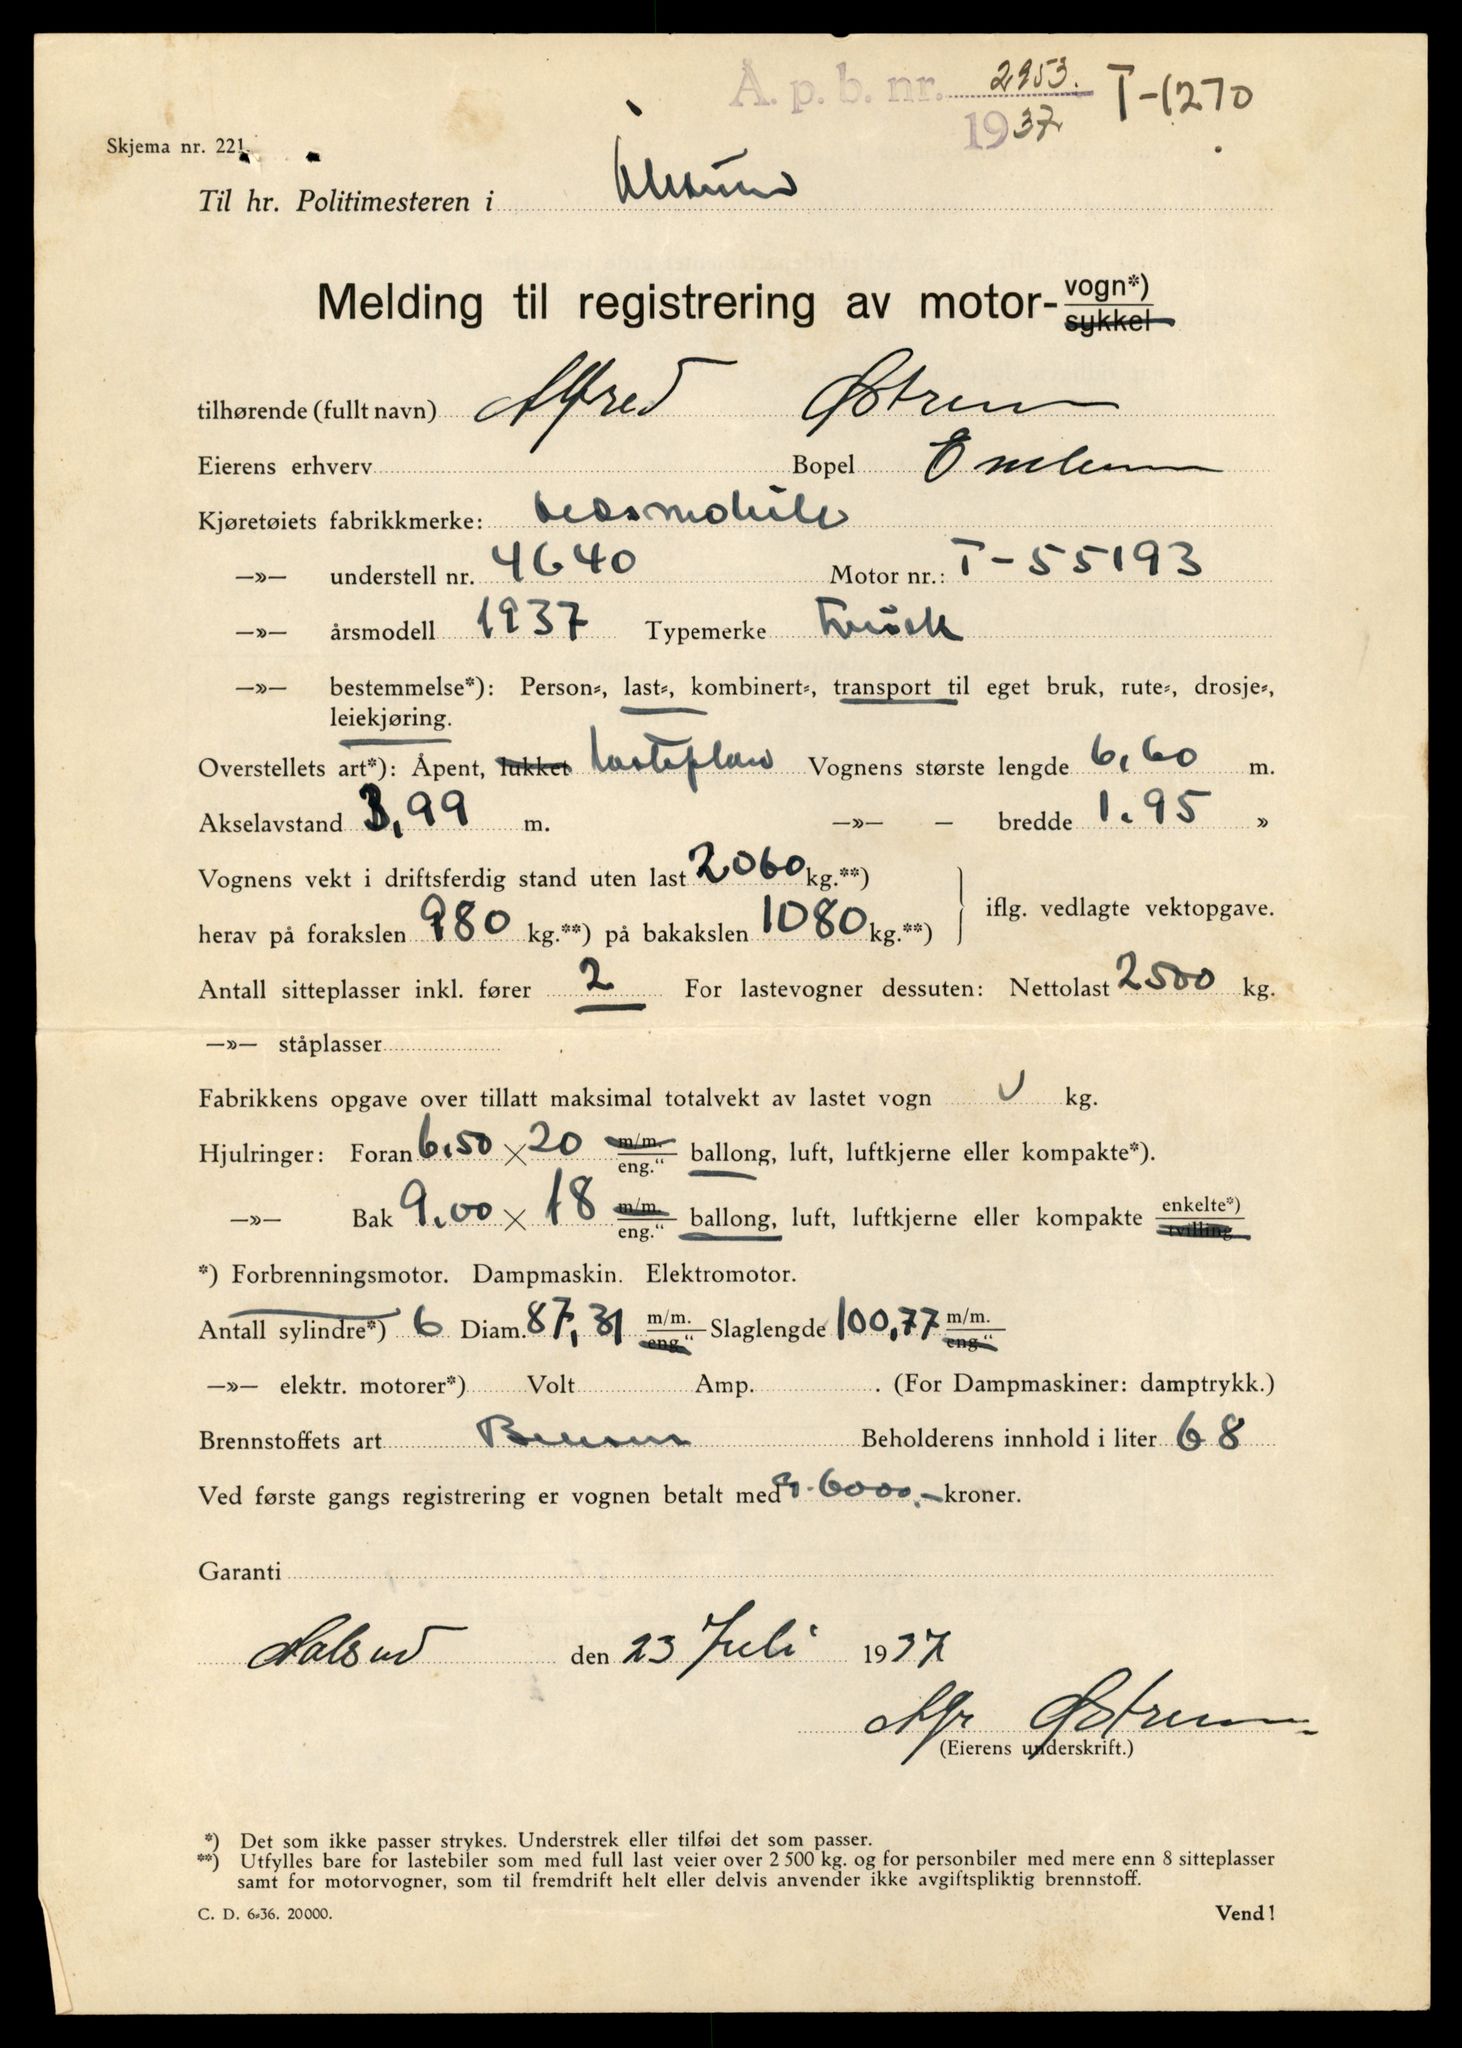 Å. p. b. nr. 2953. T-1270
1937
Skjema nr. 221.
Til hr. Politimesteren i Ålesund
Melding til registrering av motor- vogn*) sykkel
tilhørende (fullt navn) Alfred Østrem
Eierens erhverv Bopel Emblem
Kjøretøiets fabrikkmerke:
—»— understell nr. 4640 Motor nr.: T-55193
—»— årsmodell 1937 Typemerke Truck
—»— bestemmelse*): Person-, last-, kombinert-, transport til eget bruk, rute-, drosje-,
leiekjøring.
Overstellets art*): Åpent, lukket lasteplan Vognens største lengde 6,60 m.
Akselavstand 3,99 m. —»— — bredde 1.95 »
Vognens vekt i driftsferdig stand uten last 2060 kg.**)
herav på forakslen 980 kg.**) på bakakslen 1080 kg.**) iflg. vedlagte vektopgave.
Antall sitteplasser inkl. fører 2 For lastevogner dessuten: Nettolast 2500 kg.
—»— ståplasser
Fabrikkens opgave over tillatt maksimal totalvekt av lastet vogn kg.
Hjulringer: Foran 6.50 × 20 m/m. eng.“ ballong, luft, luftkjerne eller kompakte*).
—»— Bak 9.00 × 18 m/m. eng.“ ballong, luft, luftkjerne eller kompakte enkelte*) tvilling
*) Forbrenningsmotor. Dampmaskin. Elektromotor.
Antall sylindre*) 6 Diam. 87,31 m/m. eng.“ Slaglengde 100,77 m/m. eng.“
—»— elektr. motorer*) Volt Amp. . (For Dampmaskiner: damptrykk.)
Brennstoffets art Bensin Beholderens innhold i liter 68
Ved første gangs registrering er vognen betalt med 6000,- kroner.
Garanti
Aalesund den 23 Juli 1937
Alfr Østrem
(Eierens underskrift.)
*) Det som ikke passer strykes. Understrek eller tilføi det som passer.
**) Utfylles bare for lastebiler som med full last veier over 2 500 kg. og for personbiler med mere enn 8 sitteplasser
samt for motorvogner, som til fremdrift helt eller delvis anvender ikke avgiftspliktig brennstoff.
C. D. 6-36. 20000. Vend!